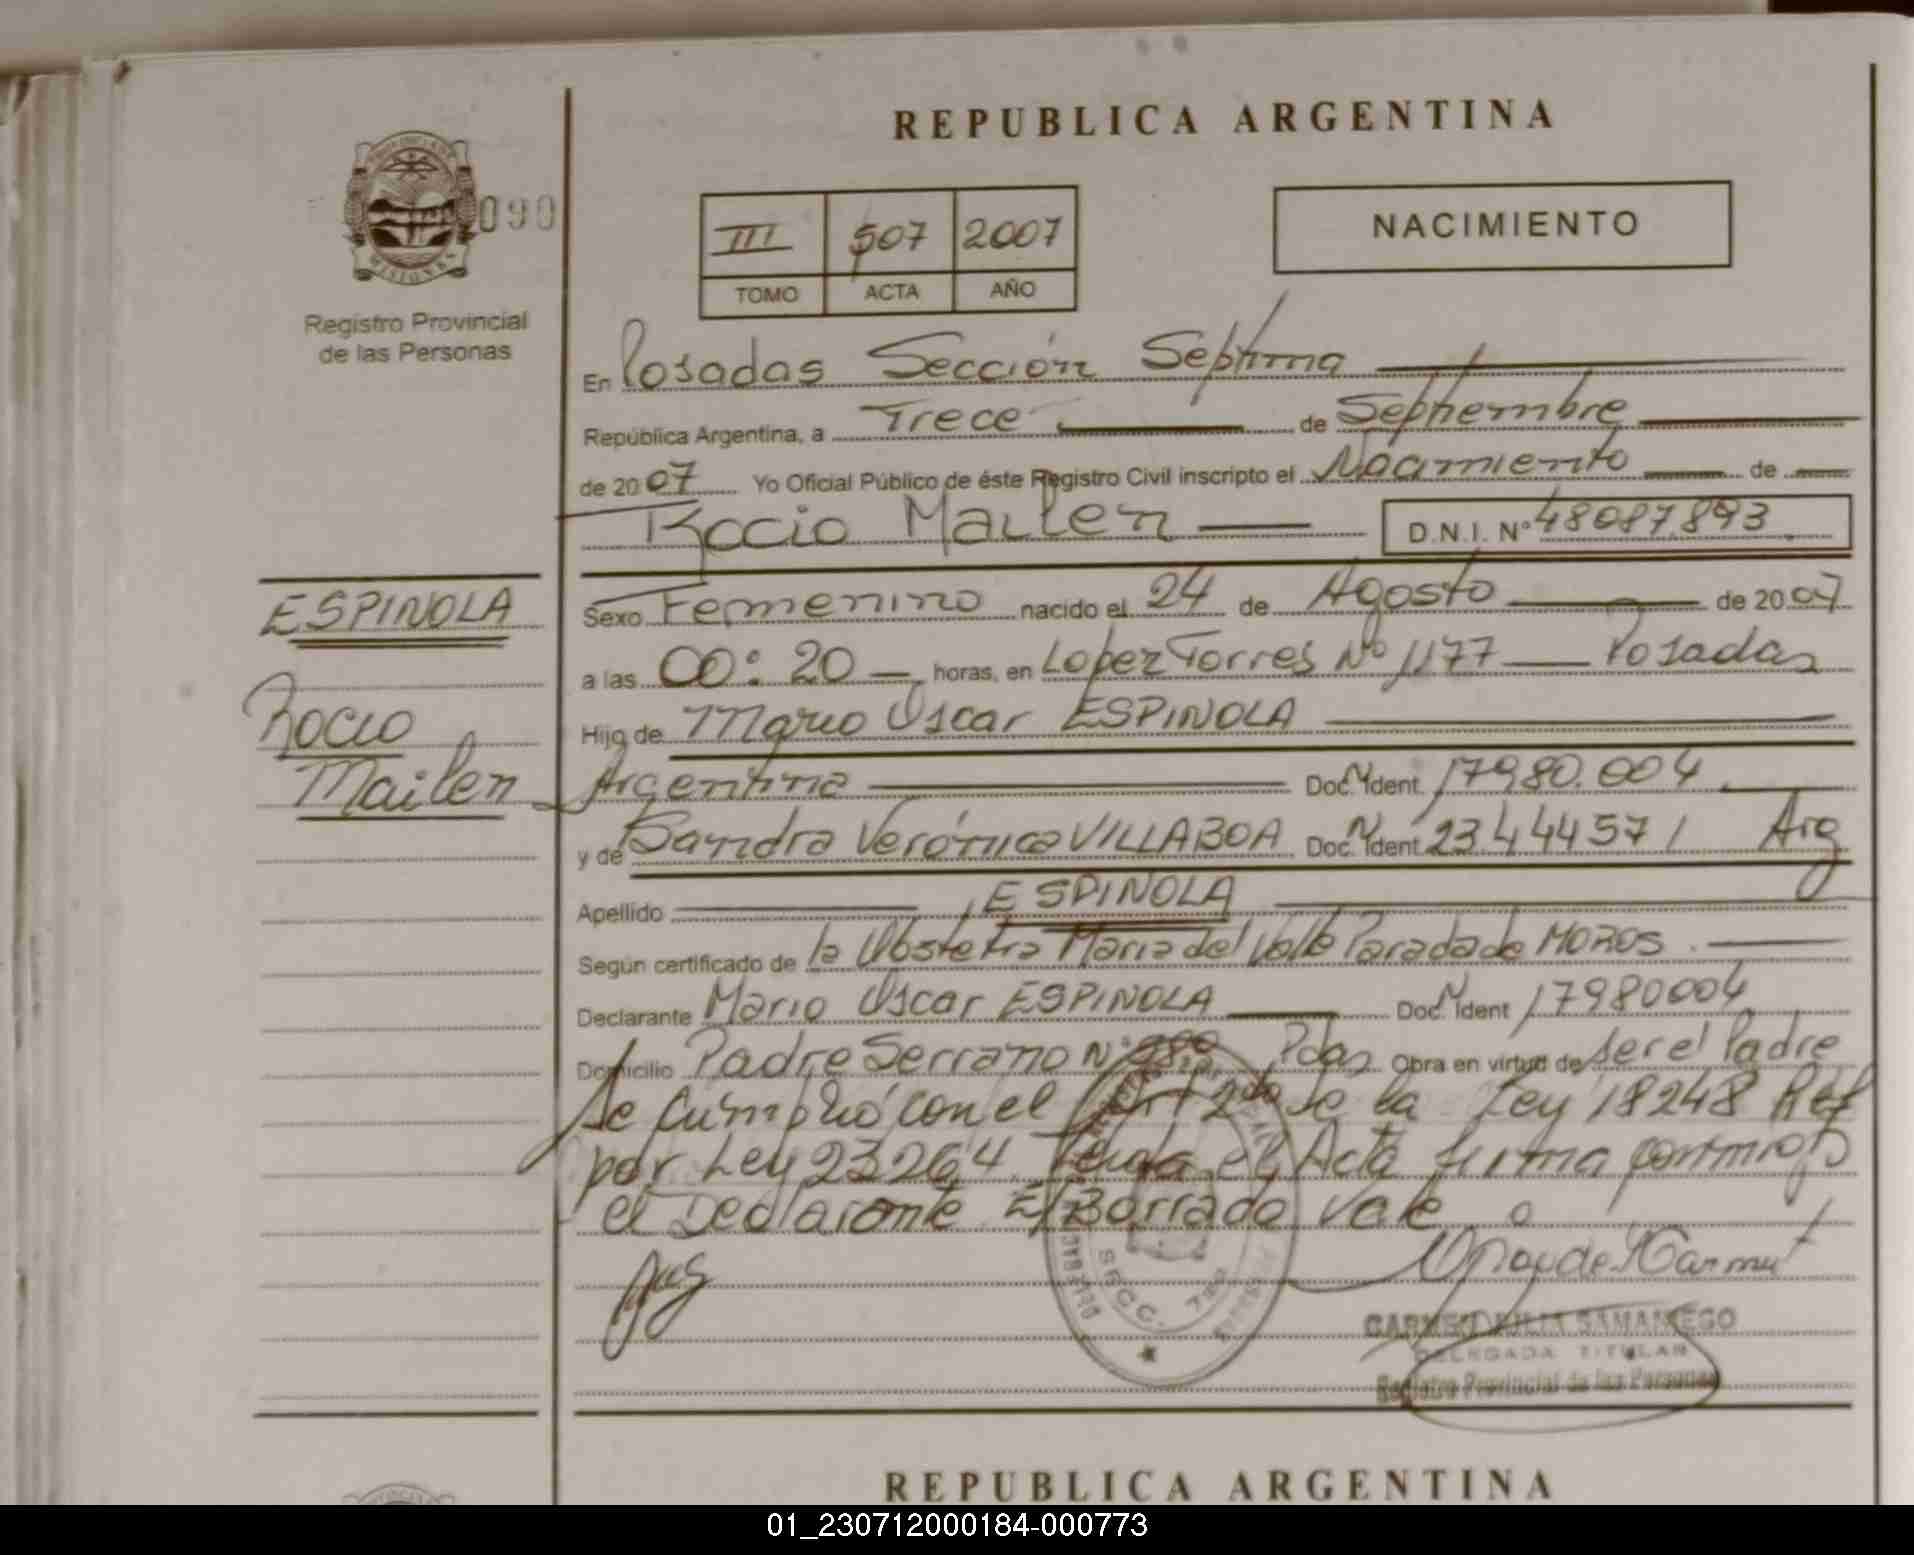 REPUBLICA ARGENTINA
090
MISIONES
Registro Provincial
de las Personas
III 507 2007
TOMO ACTA AÑO
NACIMIENTO
En Posadas Sección Septima
República Argentina, a Trece de Septiembre
de 2007 Yo Oficial Público de éste Registro Civil inscripto el Nacimiento de
Rocio Mailen D.N.I. Nº 48087893
ESPINOLA
Rocio
Mailen
Sexo Femenino nacido el 24 de Agosto de 2007
a las 00:20 horas, en Lopez Torres Nº 1177 Posadas
Hijo de Mario Oscar ESPINOLA
Argentina Doc. Ident. 17980.004
y de Sandra Verónica VILLABOA Doc. Ident. 23444571 Arg
Apellido ESPINOLA
Según certificado de la Obstetra Maria del Valle Parada de MOROS
Declarante Mario Oscar ESPINOLA Doc. Ident 17980004
Domicilio Padre Serrano Nº Pdas Obra en virtud de ser el Padre
Se Cumplió con el Art 2do de la Ley 18248 Ref
por Ley 23264 el Acta firma conmigo
el Declarante E/Borrado Vale
SECC.
CARMEN SAMANIEGO
DELEGADA TITULAR
Registro Provincial de las Personas
REPUBLICA ARGENTINA
01_230712000184-000773